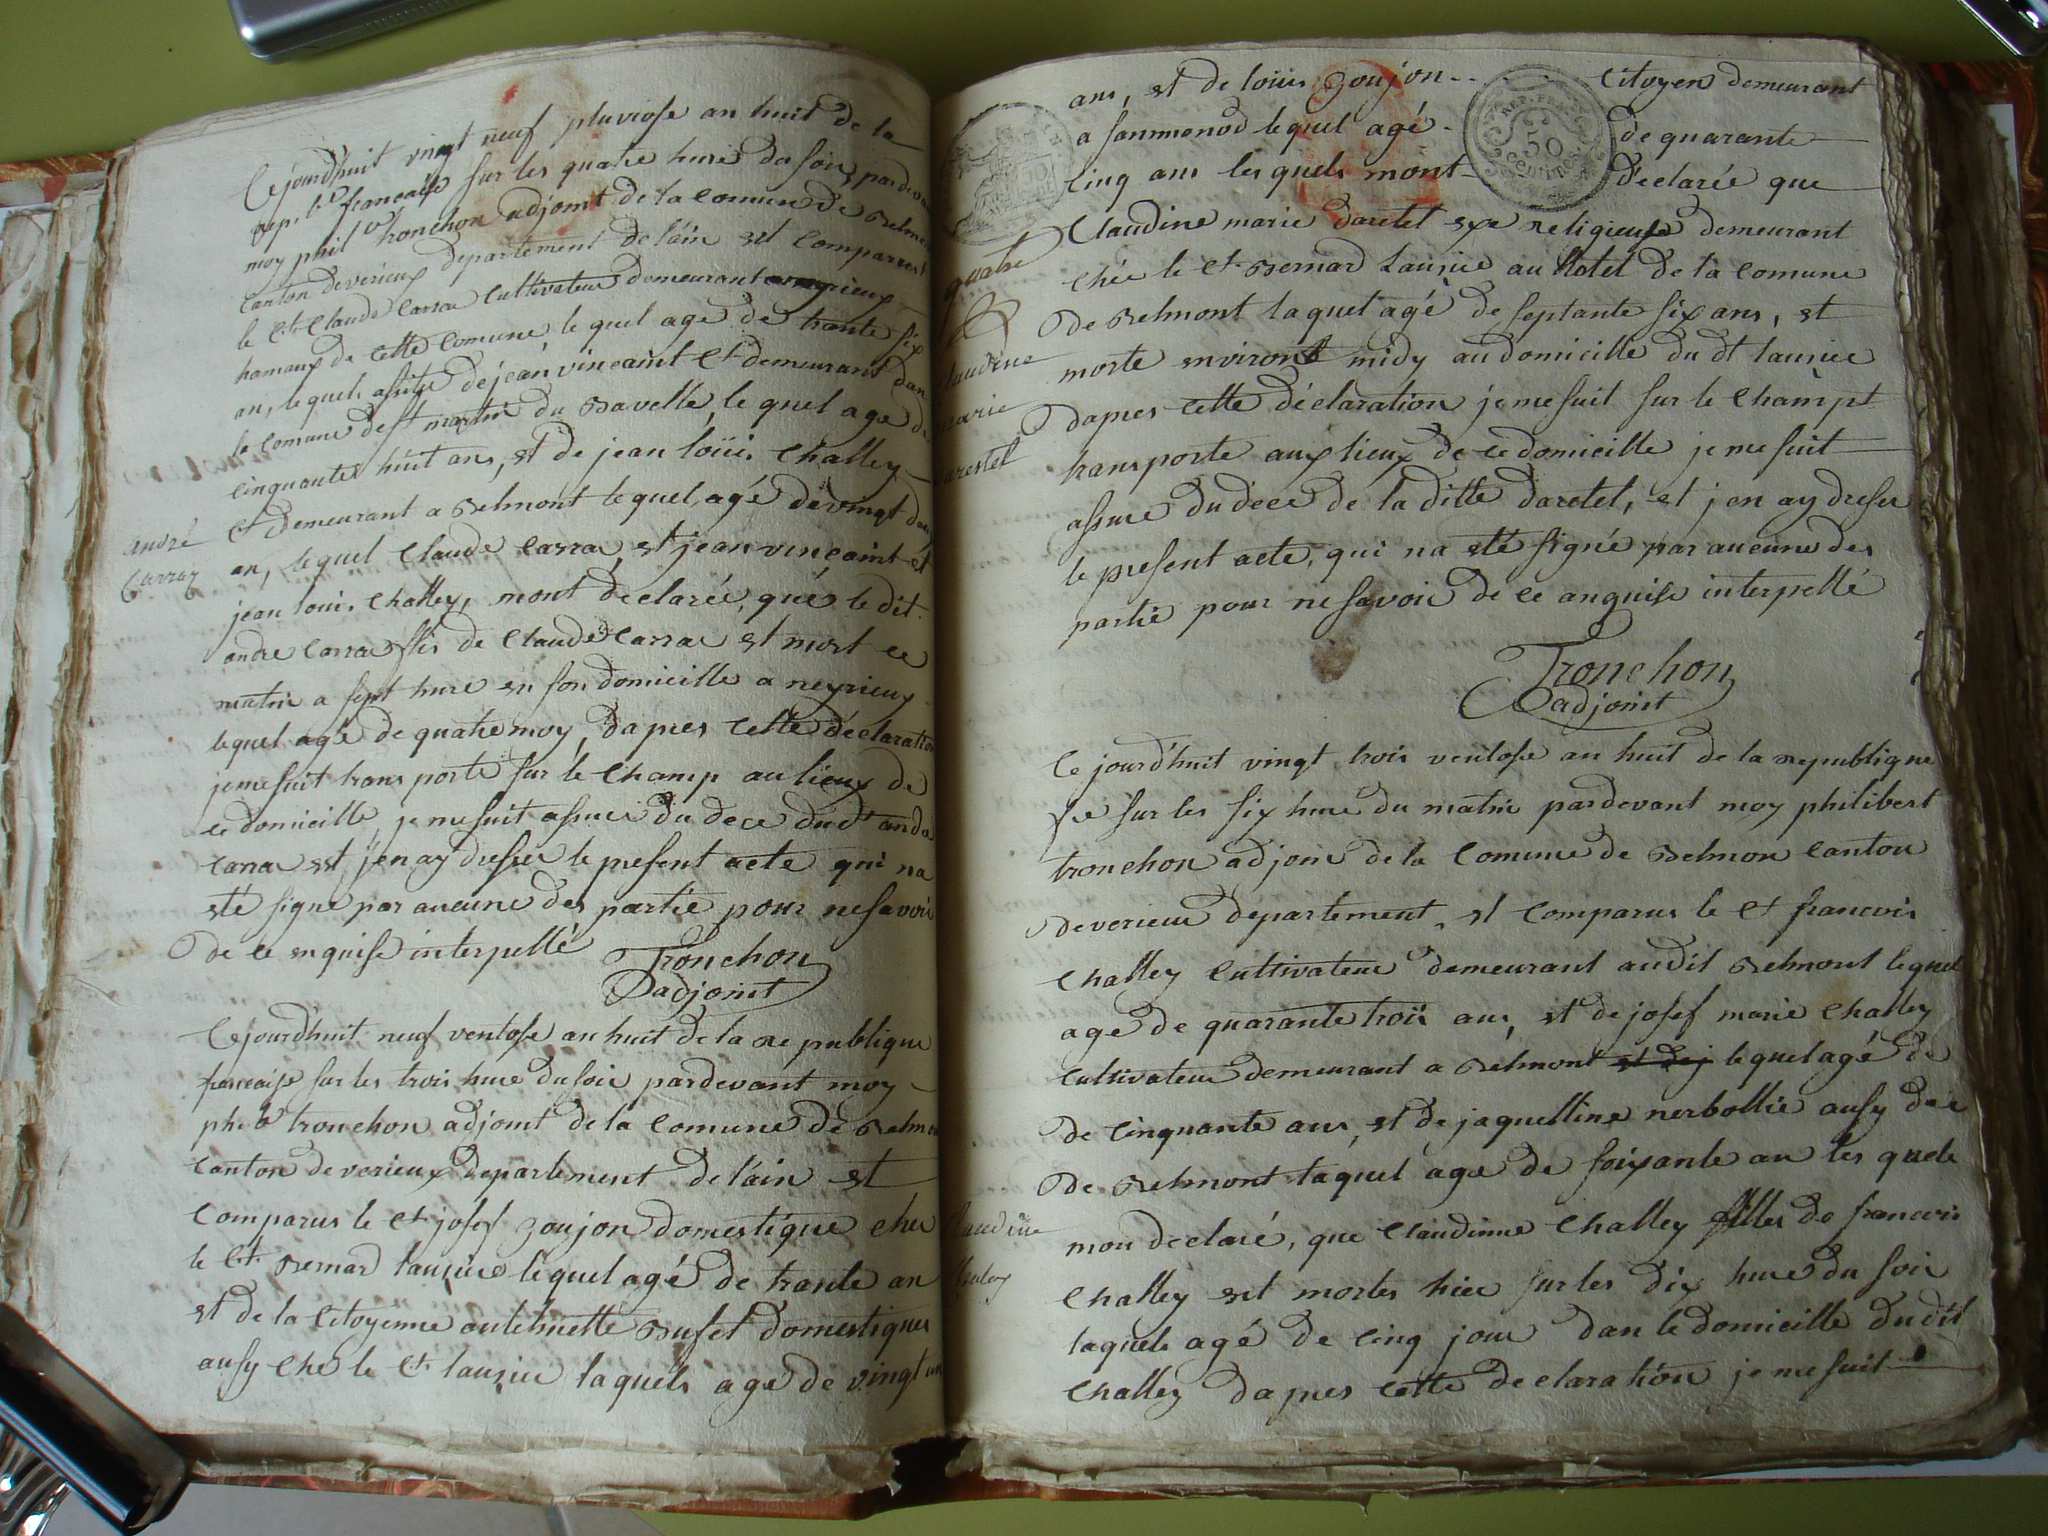 Cejourdhuit vingt neuf pluviose an huit de la
rep. francaise sur les quatre hure du soir pardevan
moy phil tronchon adjoint de la comune de Belmon
canton deverieux departement de lain est comparus
le Ct Claude Carra Cultivateur demeurant a neyrieux
hamaux de cette comune, le quel age de trante six
an, lequel assité de jean vincaint Ct demeurant dan
la comune de st martin du Bavelle, le quel age de
cinquante huit ans, et de jean loüis Challey
Ct demeurant a Belmont le quel agé de vingt deu
an, lequel Claude Carra, et jean vinçaint et
jean louis Challey, mont declarée, qué, le dit
andre Carra fils de Claude Carra et mort ce
matin a sept hure en son domicille a neyrieux
lequel agé de quatre moy, dapres cette déclaration
jemesuit trans porte sur le champ au lieux de
ce domicille, je me suit assurer du dece dudt andre
Carra est jen ay dresser le present acte qui na
eté signe par aucune des partie pour ne savoir
de ce enquise interpellé
Tronchon
adjoint
andré
Carraz
Cejourdhuit neuf ventose an huit de la republique
francaise sur les trois hure du soir pardevant moy
phi.b tronchon adjoint de la comune de Belmon
canton deverieux departement de lain et
comparus le Ct josef goujon domestique cher
le Ct Bernard laurier lequel agé de trante an
et de la Citoyenne antelmette Bufet domestiques
ausy che le Ct laurier laquels age de vingt un
ans, et de loüis goujon Citoyen demeurant
a sanmonod lequel agé de quarante
cinq ans lesquels mont déclarée que
Claudine marie daretet exe religieuse demeurant
chée le Ct Bernard Laurier au hotel de la comune
de Belmont laquel agé de septante six ans, et
morte environt midy au domicille du dt laurier
dapres cette déclaration jemesuit sur le Champt
transporte aux lieux de ce domicille je me suit
assure du dece de la ditte daretet, et jen ay dresser
le present acte, qui na eté signé par aucune des
partie pour ne savoir de ce anquise interpellé
Tronchon
adjoint
quatre
laudine
marie
darestel
REP. FRA.
50
CENTIMES
Ce jourd'huit vingt trois ventose an huit de la republique
f.se sur les six hure du matin pardevant moy philibert
tronchon adjoin de la Comune de Belmon Canton
deverieux departement, et comparus le Ct francois
Challey Cultivateur demeurant audit Belmont lequel
age de quarante troii ans, et de josef marie Challey
cultivateur demeurant a Belmont et de j lequel agé de
de cinquante ans, et de jaquelline nerbollier ausy dée
de Belmont laquel age de soixante an les quels
mon declaré, que Claudinne Challey filles de francois
Challey est mortes hier sur les dix hure du soir
laquels agé de cinq jour dan le domicille dudit
Challey dapres cette declaration je me suit
laudine
Challey